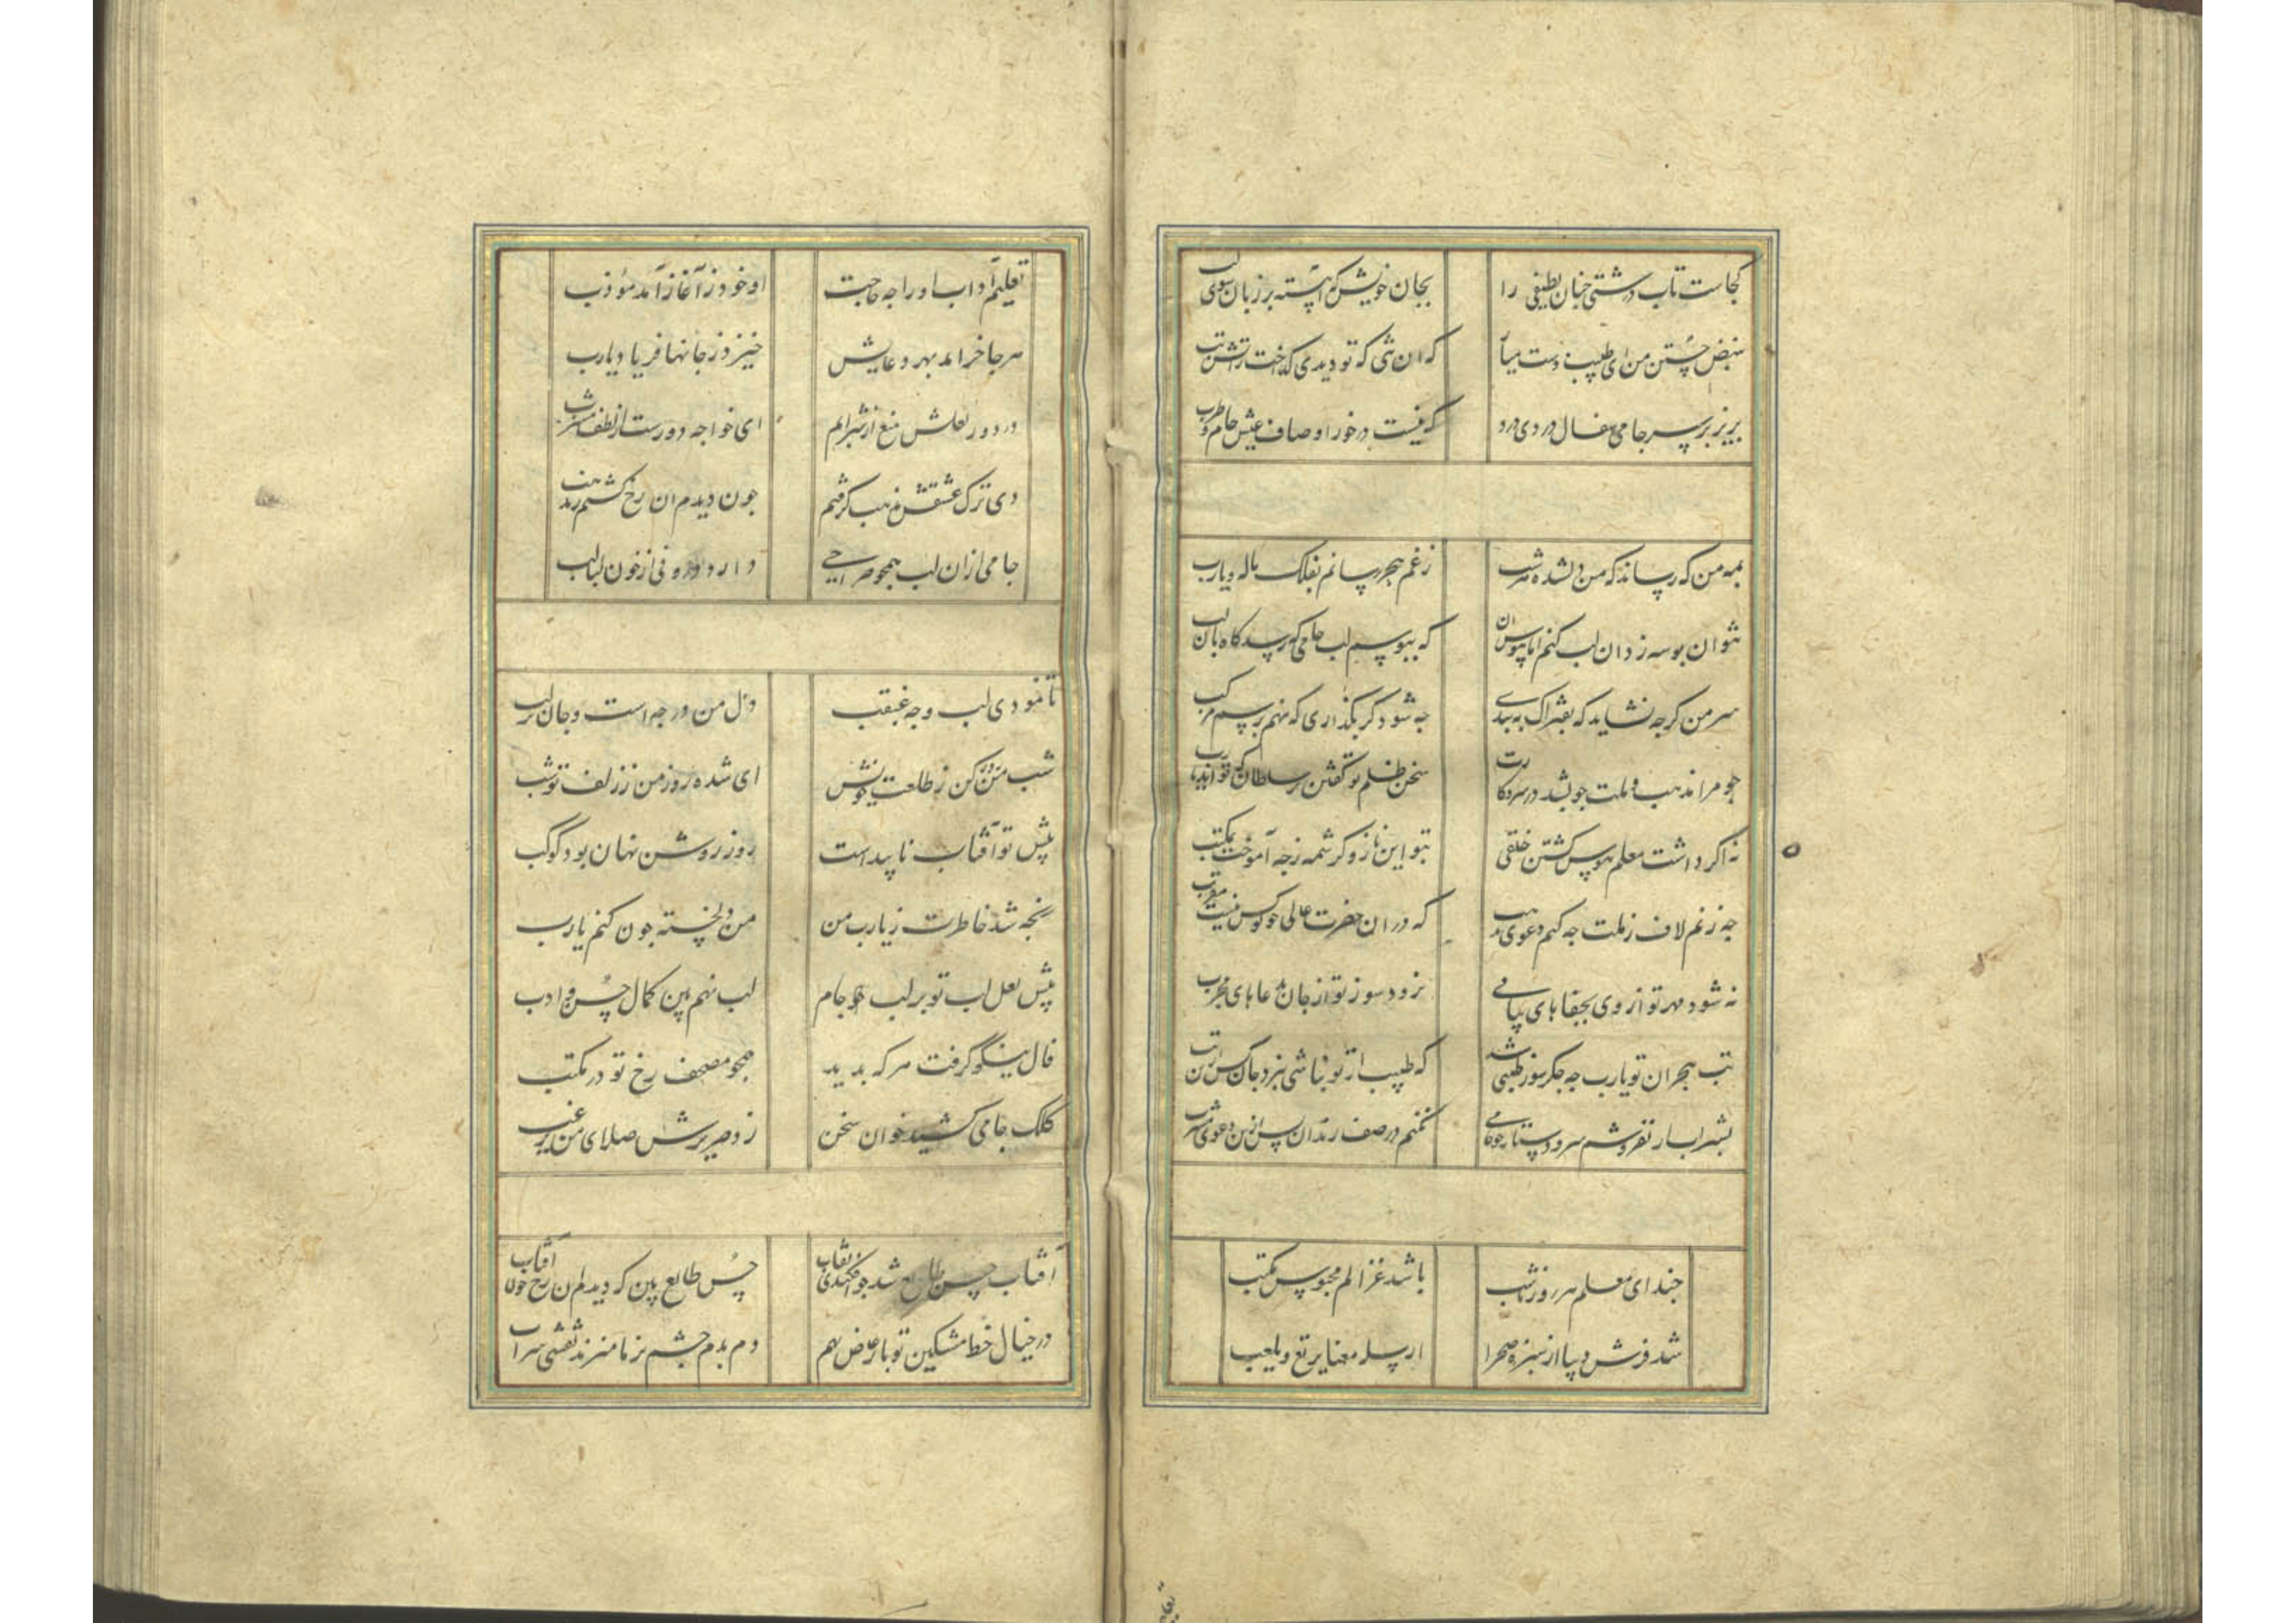 کجاست تاب درشتی چنان لطیفی را بجان خویش که آهسته بر زبان سوی لب
بنبض جستن من ای طبیب دست میآ که ان نئی که تو دیدی کداخت زاتش تب
بریز بر سر جامی سفال دردی درد که نیست درخور او صاف عیش جام طرب
بمه من که رساند که من دلشده هر شب زغم هجر رسانم بفلک ناله و یارب
نتوان بوسه زدن ان لب کنم اما بهوس ان که ببوسم لب جامی که رسد کاه بان لب
سر من کرجه نشاید که بفتراک ببندی جه شود کر بکذاری که نهم بر سم مرکب
جو مرا مذهب و ملت جو بشد در سر و کارت سخن ظلم تو کفتن بر سلطان که تواند
نه اکر داشت معلم هوس کشتن خلقی بتو این ناز و کرشمه زجه آموخت بمکتب
جه زنم لاف زملت جه کنم دعوی مذهب که در ان حضرت عالی جو توکس نیست مقرب
نه شود مهر تو از وی بجفاهای پیاپی نرود سوز تو از جان بدعاهای مجرب
تب هجران تو یارب جه جکر سوز طبیبی شد که طبیب ار تو نباشی نبرد جان کس ازین تب
بشراب ار نفروشم سر و دستار جو جامی نکنم در صف رندان پس ازین دعوی مشرب
جند ای معلم هر روز تا شب باشد غزالم محبوس مکتب
شد فرش دیبا از سبزه صحرا ارسله معنا یرتع و یلعب
تعلیم آداب او را جه حاجت او خود ز آغاز آمد مؤدب
هر جا خرامد بهر دعایش خیزد ز جانها فریاد یارب
در دور لعلش منع از شرابم ای خواجه دورست از لطف مشرب
دی ترک عشقش مذهب کرفتم جون دیدم ان رخ کشتم ز مذهب
جامی ازان لب همجو صراحی دارد درونی از خون لبالب
تا نمودی لب و جه غبغب دل من در جه است و جان بر لب
شب من روز کن ز طلعت خویش ای شده روز من ز زلف تو شب
پیش تو آفتاب ناپیداست روز روشن نهان بود کوکب
رنجه شد خاطرت ز یارب من من دلخسته جون کنم یارب
پیش لعل لب تو بر لب جام لب نهم بین کمال حسن و ادب
فال نیکو کرفت هر که بدید همجو مصحف رخ تو در مکتب
کلک جامی کشید خوان سخن زد صریرش صلای من یرغب
آفتاب حسن طالع شد جو افکندی نقاب حسن طالع بین که دیدم ان رخ جون آفتاب
در خیال خط مشکین تو با عارض بهم دم بدم جشم تر ما میزند نقشی بر آب